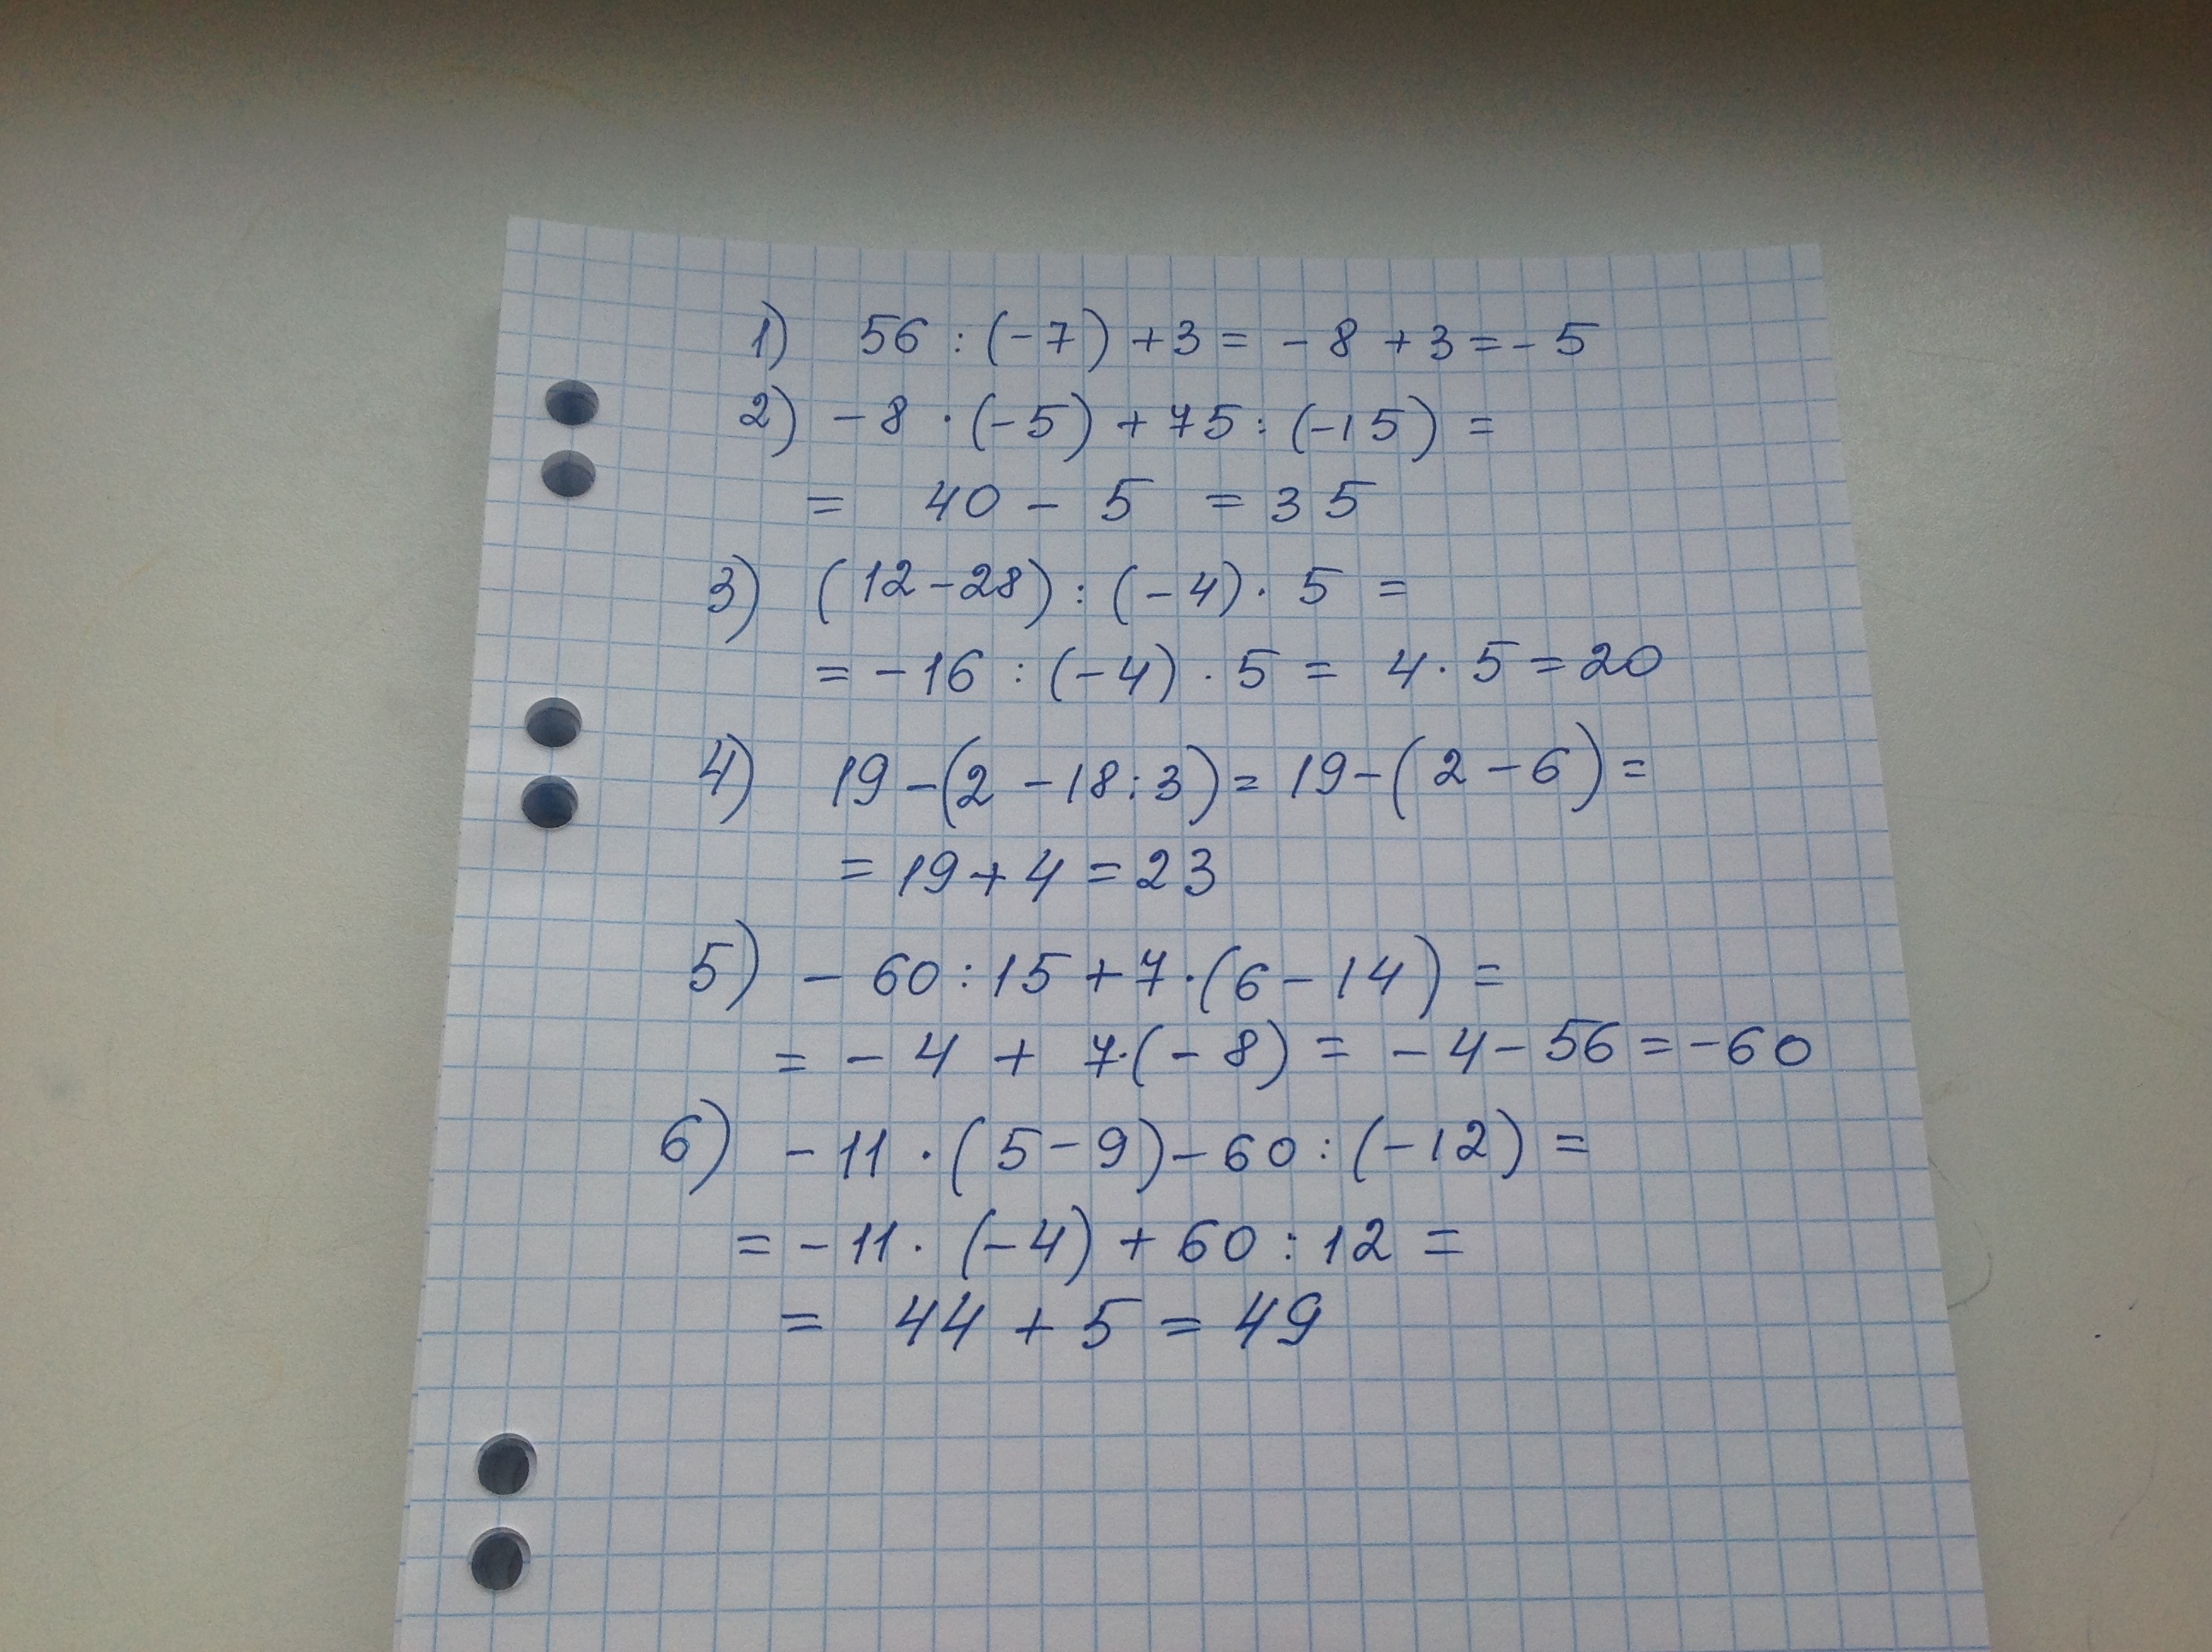 1) 56 : (-7) + 3 = - 8 + 3 = - 5
2) - 8 · (- 5) + 75 : (-15) =
= 40 - 5 = 35
3) (12 - 28) : (- 4) · 5 =
= - 16 : (- 4) · 5 = 4 · 5 = 20
4) 19 - (2 - 18 : 3) = 19 - (2 - 6) =
= 19 + 4 = 23
5) - 60 : 15 + 7 · (6 - 14) =
= - 4 + 7 · (- 8) = - 4 - 56 = - 60
6) - 11 · (5 - 9) - 60 : (- 12) =
= - 11 · (- 4) + 60 : 12 =
= 44 + 5 = 49